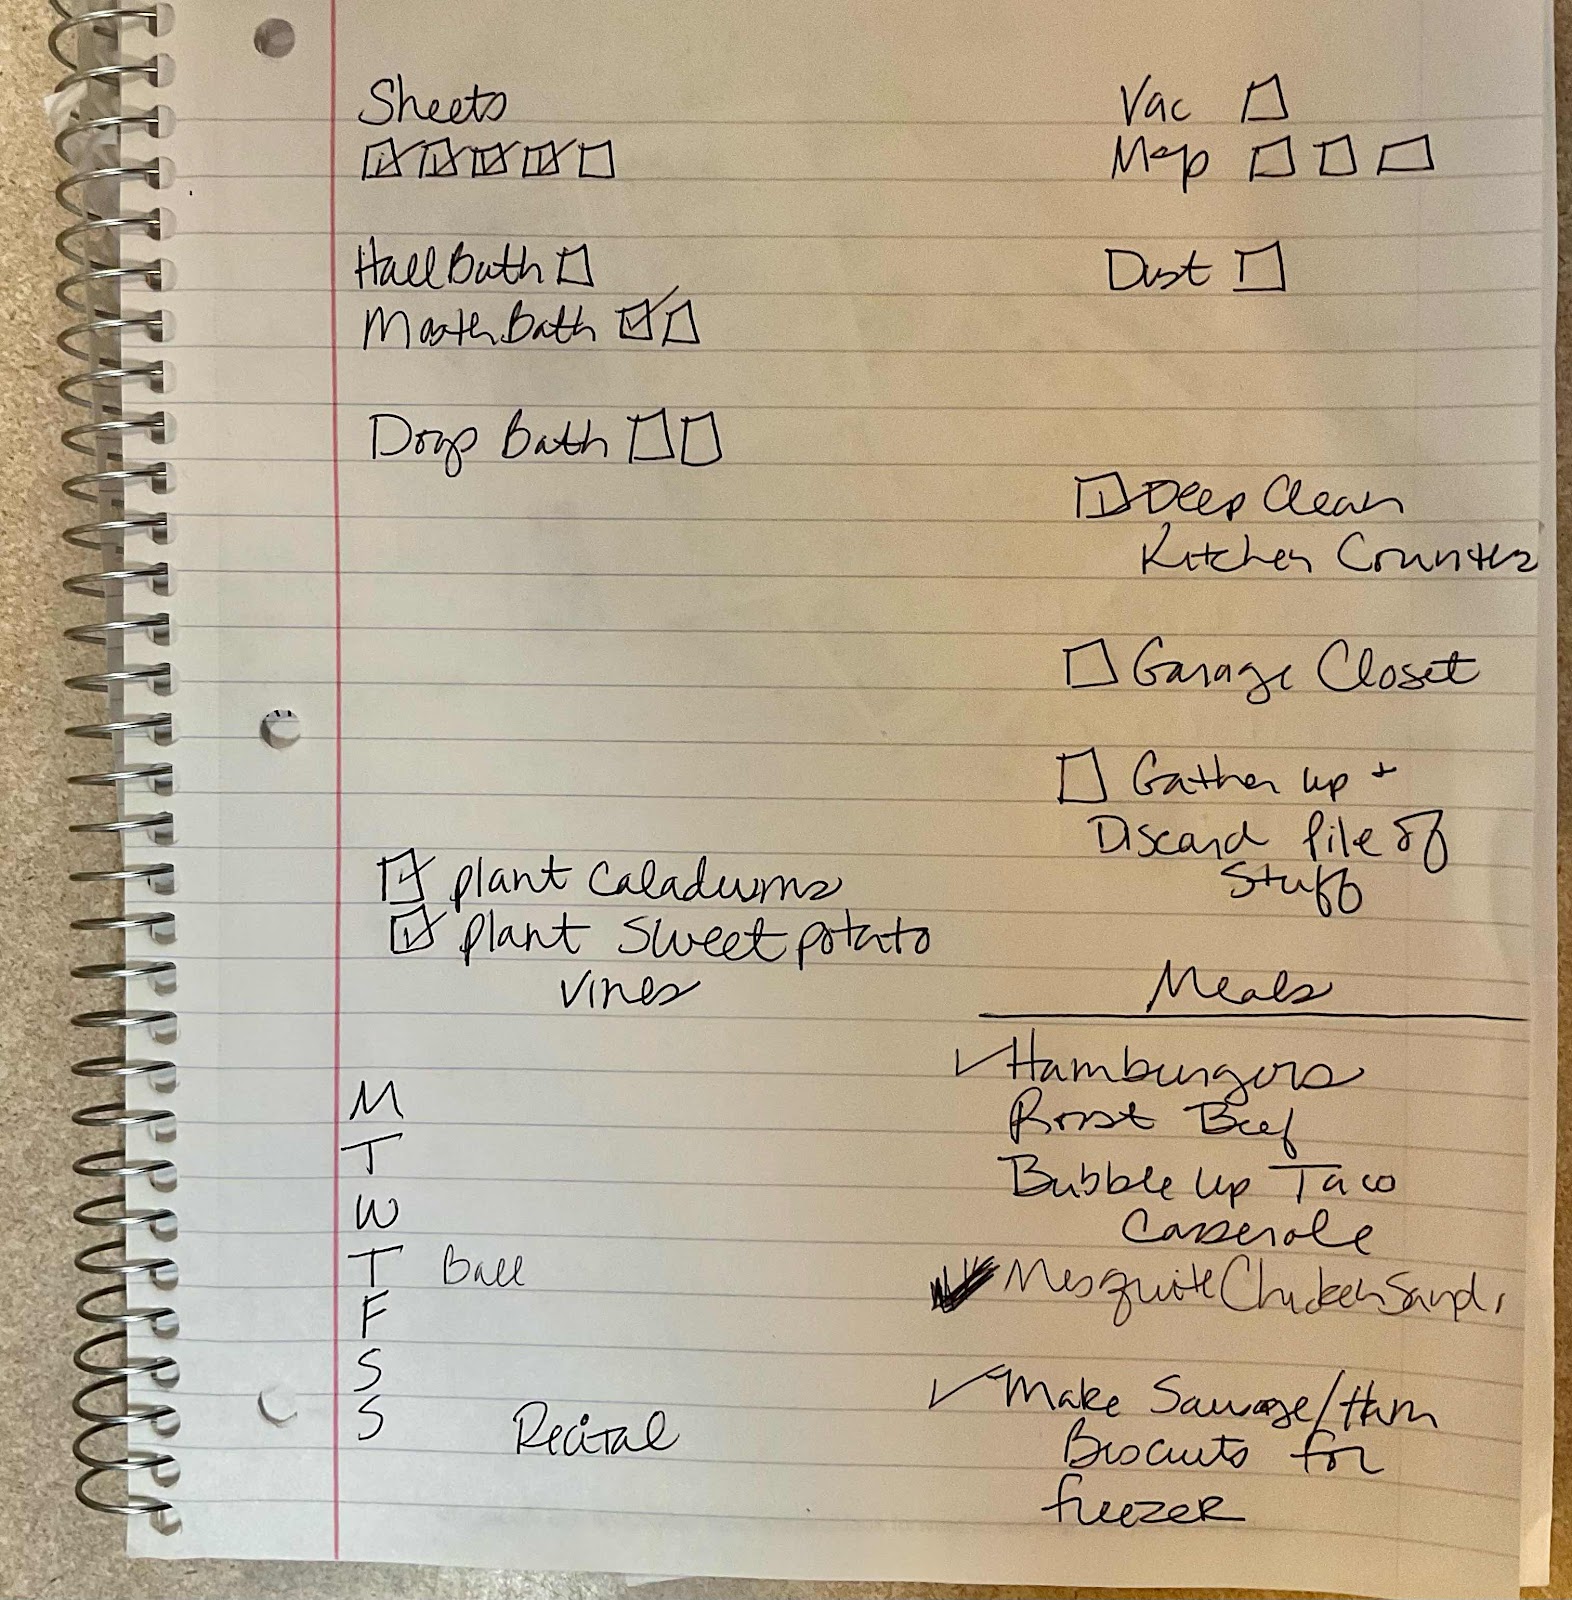 Sheets
Vac
Mop
Hall Bath
Dust
Master Bath
Dogs Bath
Deep Clean
Kitchen Counters
Garage Closet
Gather up +
Discard pile of
Stuff
plant Caladiums
plant Sweet potato
vines
Meals
Hamburgers
Roast Beef
Bubble Up Taco
Casserole
Mesquite Chicken Sand.
Make Sausage/Ham
Biscuits for
freezer
M
T
W
T Ball
F
S
S Recital